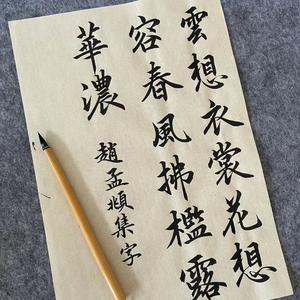 雲想衣裳花想
容春風拂檻露
華濃
趙孟頫集字